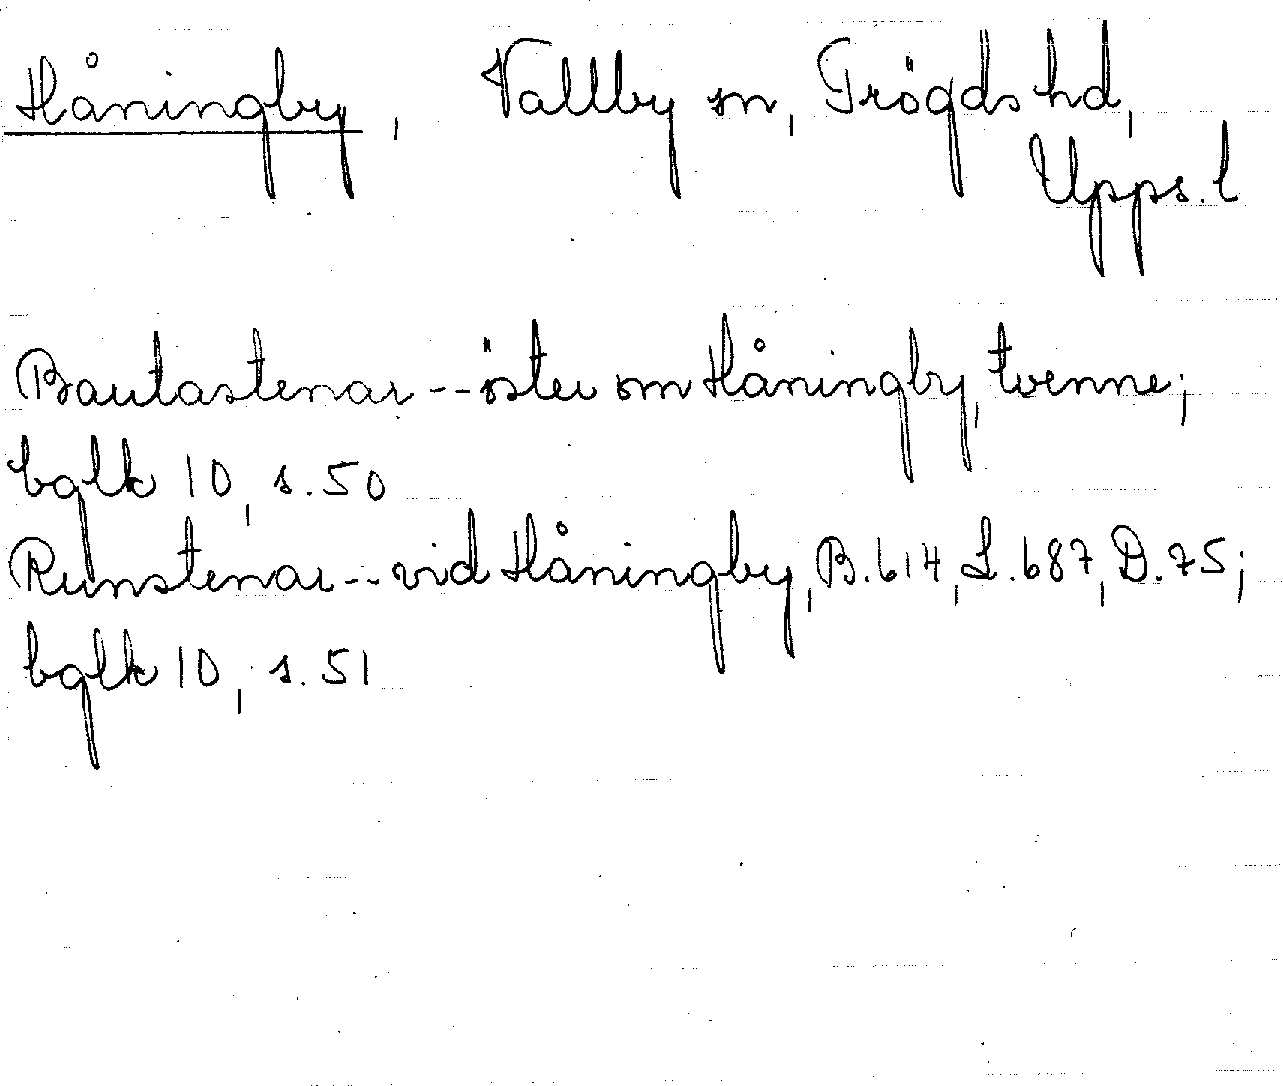 Håningby, Vallby sn, Trögds hd,
Upps. l
Bautastenar -- öster om Håningby, tvenne;
bglk 10, s. 50
Runstenar -- vid Håningby, B. 614, L. 687, D. 75;
bglk 10, s. 51